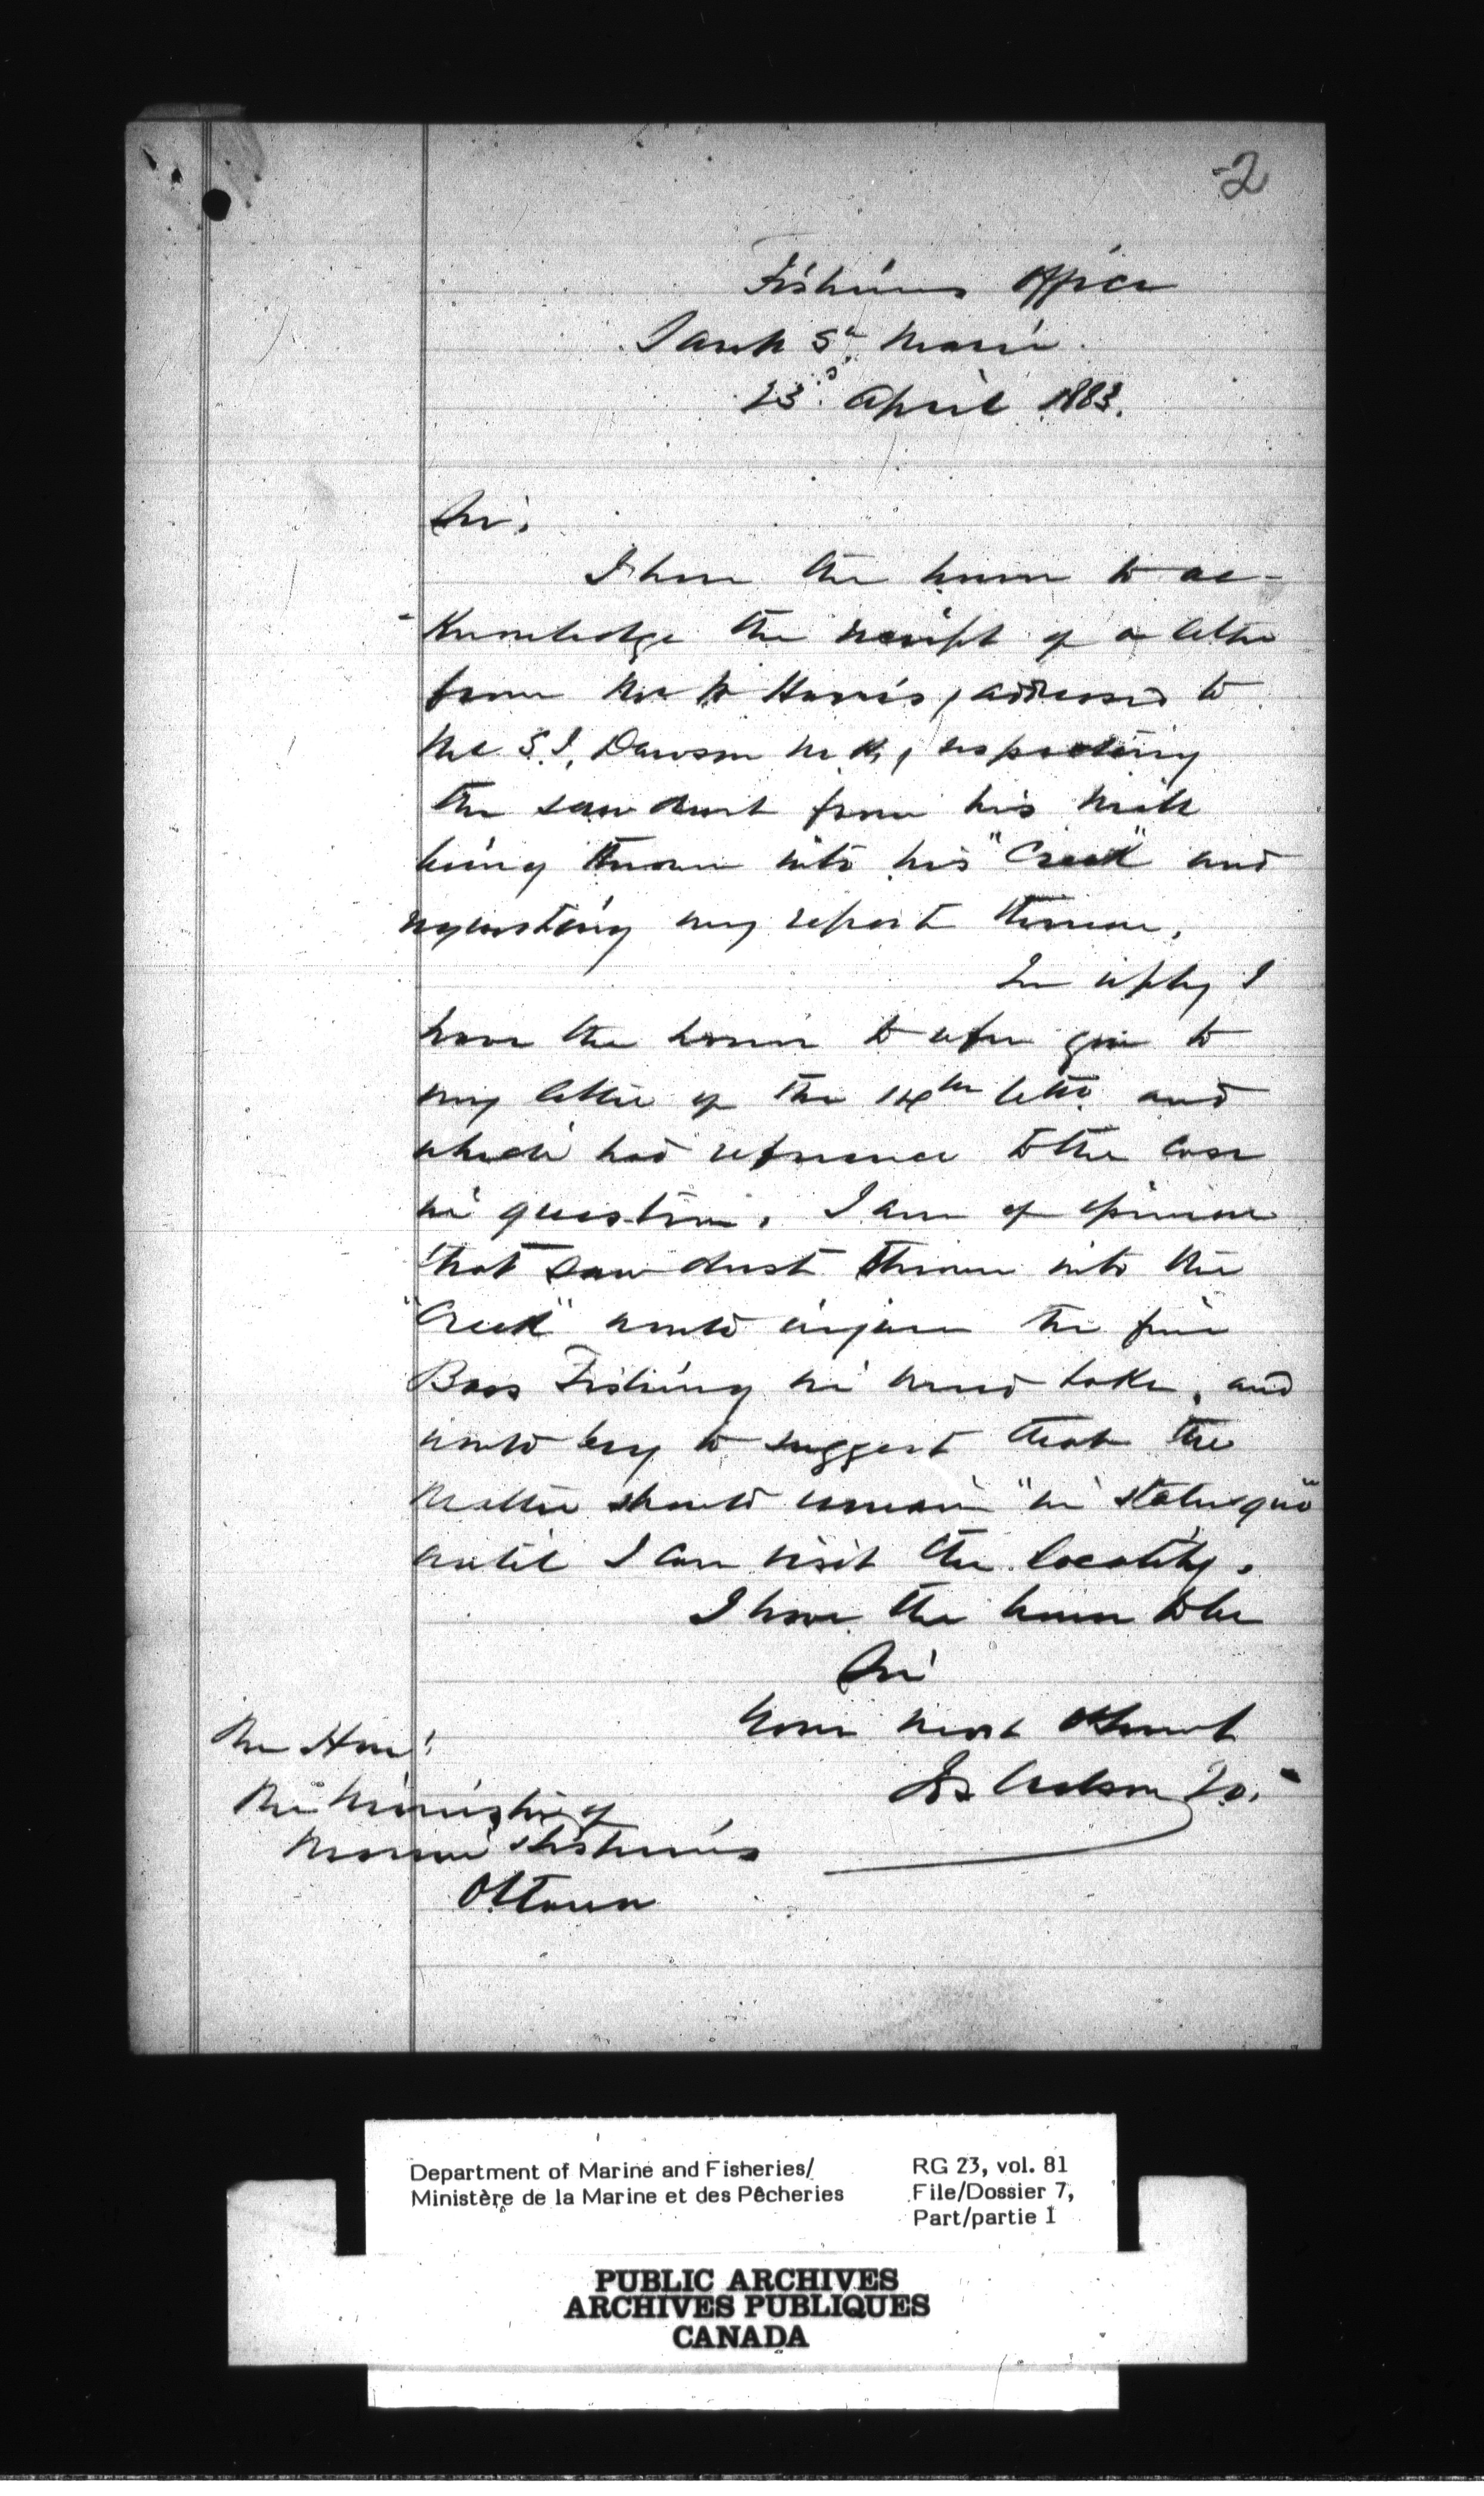 2
Fisheries Office
Sault Ste Marie
23d April 1883.
Sir,
I have the honor to ac-
-knowledge the receipt of a letter
from Mr Harris, addressed to
Mr S.J. Dawson M.P., respecting
the saw dust from his Mill
being thrown into his "Creek" and
requesting my report thereon.
In reply I
have the honor to refer you to
my letter of the 14th and
which had reference to the case
in question. I am of opinion
that saw dust thrown into the
"Creek" would injure the fine
Bass Fishing in Mud Lake, and
would beg to suggest that the
matter should remain "in statu quo"
until I can visit the locality.
I have the honor to be
Sir
Your most Obedient
The Honl
The Minister of
Marine & Fisheries
Ottawa
Department of Marine and Fisheries/
Ministère de la Marine et des Pêcheries
RG 23, vol. 81
File/Dossier 7,
Part/partie 1
PUBLIC ARCHIVES
ARCHIVES PUBLIQUES
CANADA